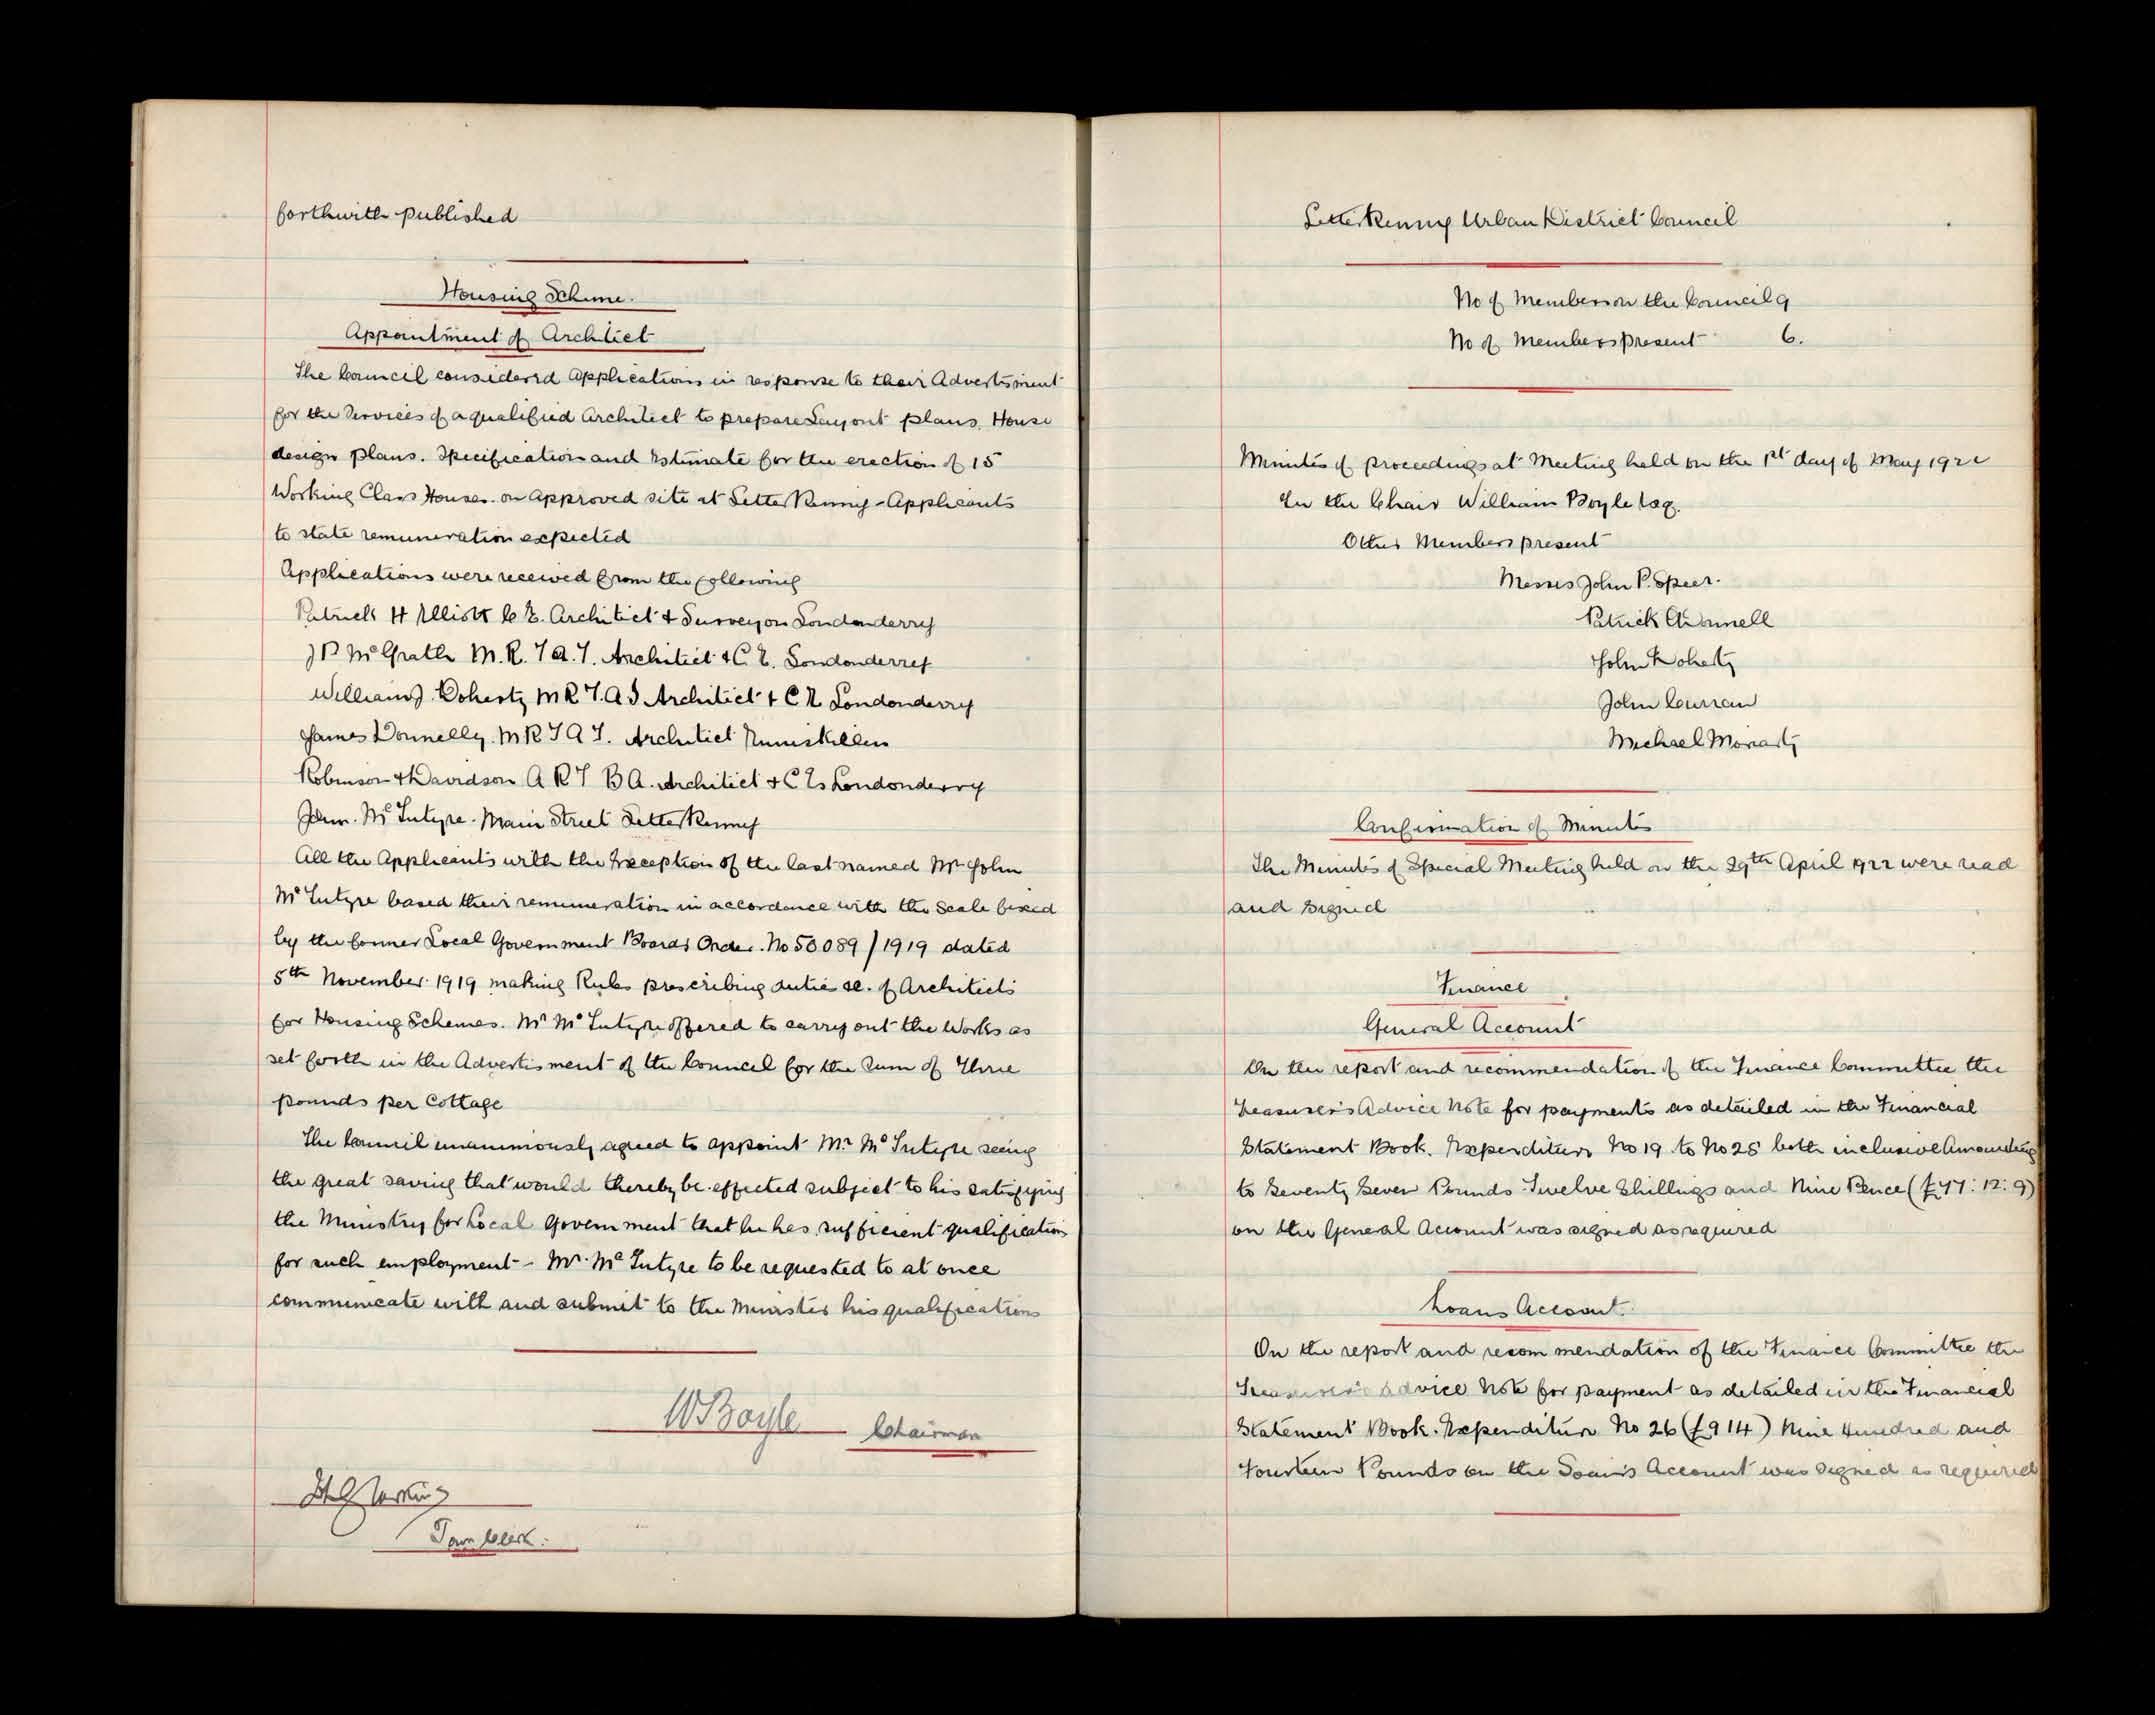 forthwith published
Housing Scheme.
Appointment of Architect
The Council considered applications in response to their Advertisment
for the Services of a qualified Architect to prepare Layout plans, House
design plans. Specification and Estimate for the erection of 15
Working Class Houses on approved site at Letterkenny - Applicants
to state remuneration expected
Applications were received from the following
Patrick H Elliott C E. Architect & Surveyor Londonderry
J P McGrath M. R. I A. I. Architect & C E. Londonderry
William J. Doherty M R I. A I Architect & C E Londonderry
James Donnelly. M R I A I. Architect Enniskillen
Robinson & Davidson A R I B A. Architect & C Es Londonderry
John Mc Intyre. Main Street Letterkenny
All the Applicants with the Exception of the last named Mr John
Mc Intyre based their remuneration in accordance with the Scale fixed
by the former Local Government Boards Order. No 50089/1919 dated
5th November 1919 making Rules prescribing duties &c. of Architects
for Housing Schemes. Mr Mc Intyre offered to carry out the Works as
set forth in the Advertisment of the Council for the Sum of Three
pounds per Cottage
The Council unanimously agreed to appoint Mr. Mc Intyre seeing
the great saving that would thereby be effected subject to his satisfying
the Ministry for Local Government that he has sufficient qualifications
for such employment - Mr. Mc Intyre to be requested to at once
communicate with and submit to the Minister his qualifications
W Boyle Chairman
Town Clerk.
Letterkenny Urban District Council
No of Members on the Council 9
No of Members present 6.
Minutes of proceedings at Meeting held on the 1st day of May 1922
In the Chair William Boyle Esq.
Other Members present
Messrs John P. Speer.
Patrick O'Donnell
John Doherty
John Curran
Michael Moriarty
Confirmation of Minutes
The Minutes of Special Meeting held on the 29th April 1922 were read
and signed
Finance
General Account
On the report and recommendation of the Finance Committee the
Treasurer's Advice Note for payments as detailed in the Financial
Statement Book. Expenditure No 19 to No 25 both inclusive Amounting
to Seventy Seven Pounds Twelve Shillings and Nine Pence (£77:12:9)
on the General Account was signed as required
Loans Account.
On the report and recommendation of the Finance Committee the
Treasurer's Advice Note for payment as detailed in the Financial
Statement Book. Expenditure No 26 (£914) Nine Hundred and
Fourteen Pounds on the Loans Account was signed as required